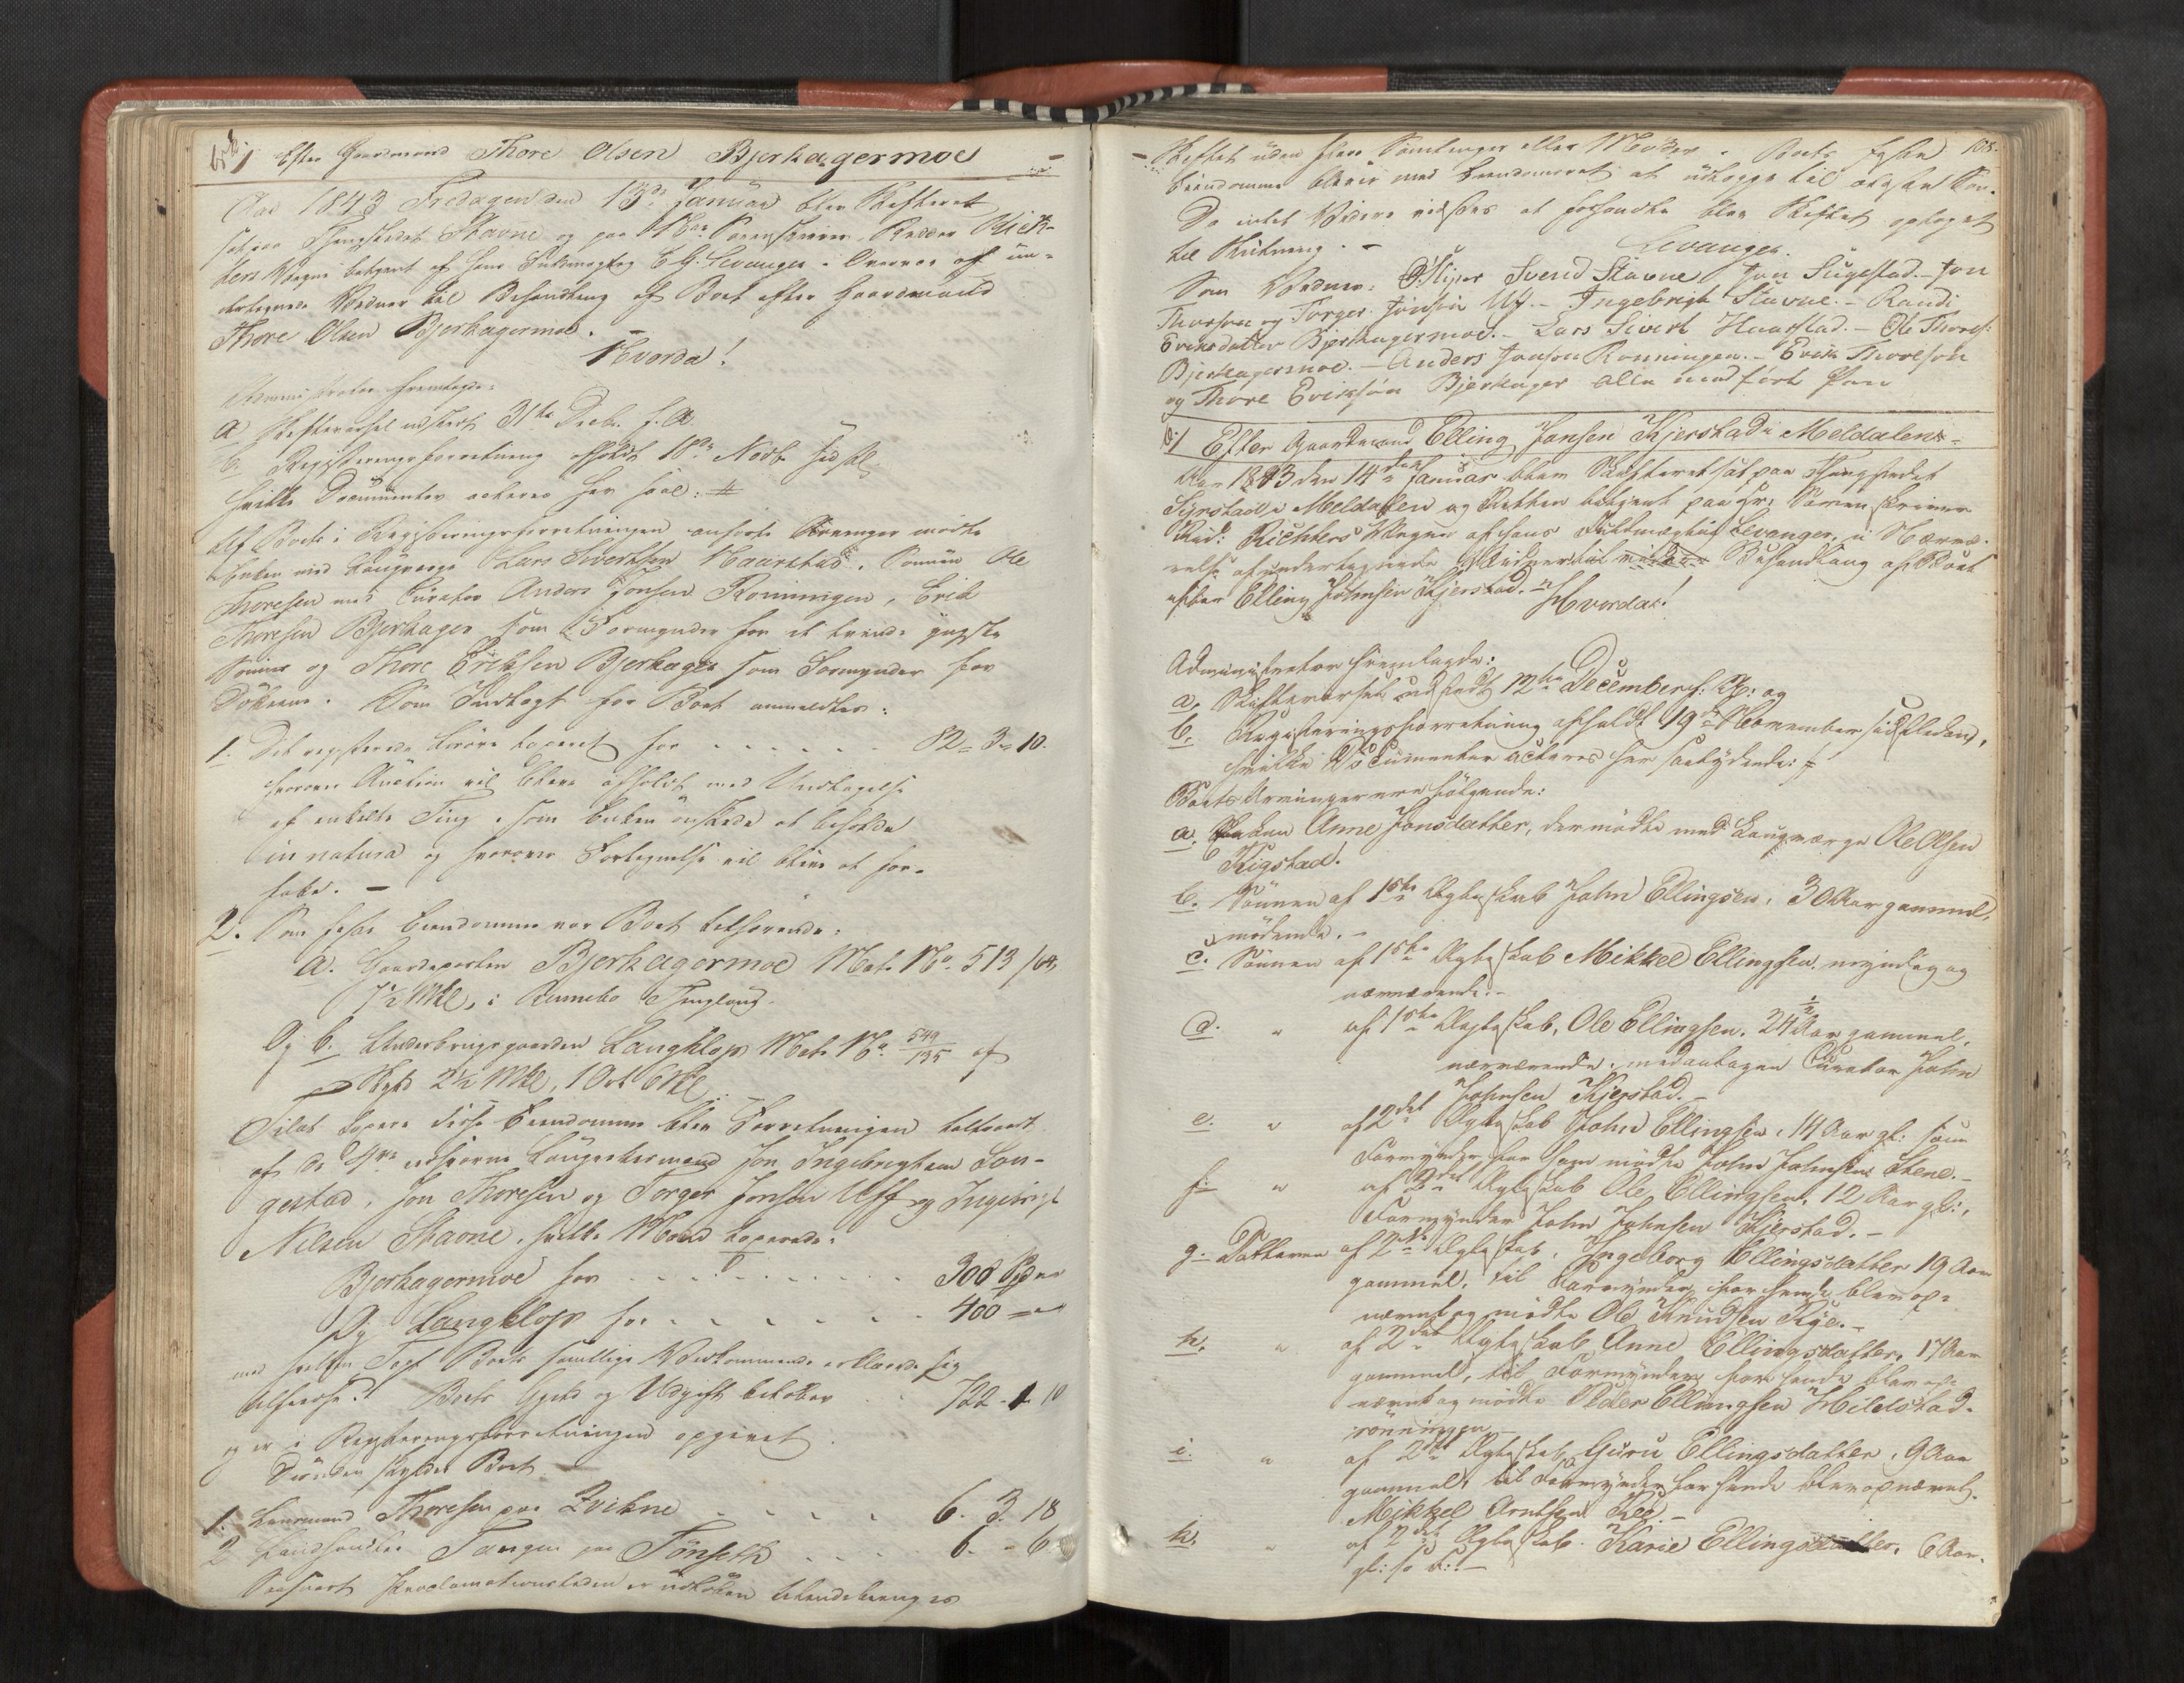 Efter Gaardmand Thore Olsen Bjerkagermoe
Aar 1843 Fredagen den 13de Januar blev Skifteret
sat paa Thingstedet Stavne og paa Sorenskriver Richters
Vegne betjent af hans Fuldmægtig Levanger i Overvær af un-
dertegnede Vidner til Behandling af Boet efter Gaardmand
Thore Olsen Bjerkagermoe. -
Hvorda!
Administrator fremlagde:
a Skiftevarsel udstædt 31te Decbr. f. A.
b. Registreringsforretning afholdt 18de Novbr sidstl.
hvilke Documenter acteres her saal: #
Af Boets i Registreringsforretningen anførte Arvinger mødte
Enken med Laugværge Lars Sivertsen Haarstad. Sønnen Ole
Thoresen med Curator Anders Jonsen Rønningen, Erik
Thoresen Bjerkager som Formynder for de tvende yngste
Sønner og Thore Eriksen Bjerkager som Formynder for
Døtrene. Som Indtægt for Boet anmeldtes:
1. Det registrerede Løsøre taxeret for - - - - - - 82 = 3 = 10.
hvorover Auction vil blive afholdt med Undtagelse
af enkelte Ting, som Enken ønskede at beholde
in natura og hvorover Fortegnelse vil blive at for-
fatte. -
2. Som faste Eiendomme var Boet tilhørende:
a. Gaardeparten Bjerkagermoe Mat. No. 513
7½ Mkl, i Rennebo Thinglaug.
Og b. Underbrugsgaarden Langklop Mat. No. 549/135 af
Skyld 2½ Mkl, 1 Ort 6 sk
Til at taxere disse Eiendomme blev Forretningen tiltraadt
af de udnævnte Laugrettesmænd Jon Ingebrigtsen Son-
gestad, Jon Thoresen og Torger Jonsen Uff og Ingebrigt
Nilsen Stavne, hvilke Mænd taxerede:
Bjerkagermoe for - - - - - - - 300 Spd
Og Langklop for - - - - - - - 400 =
med hvilken Taxt Boets samtlige Vedkommende erklærede sig
tilfredse. Boets Gjeld og Udgift beløber 722 - 1 - 10
og er i Registreringsforretningen opgivet.
Desuden skylder Boet
1. Lensmand Thoresen paa Qvikne - - - - - 6. 3. 18
2 Landhandler Tangen paa Tønseth - - - - 6. - 6
Saasnart Proclamationstiden er udløben tilendebringes
108.
Skiftet uden flere Samlinger eller Møder. Boets faste
Eiendomme blever med Eenstemmighed at udlægge til ældste Søn.
Da intet Videre vidstes at forhandle blev Skiftet optaget
til Slutning. -
Levanger.
Som Vidner: Svend Stavne Jon Sugestad. - Jon
Thoresen og Torger Jonsen Uff. - Ingebrigt Stavne. - Randi
Eriksdatter Bjerkagermoe. - Lars Sivert Haarstad. - Ole Thores:
Bjerkagermoe. - Anders Jonsen Rønningen. - Erik Thoresøn
og Thore Eriksøn Bjerkager alle med ført Pen
Efter Gaardmand Elling Jansen Kjerstad i Meldalen -
Aar 1843 den 14de Januar blev Skifteret sat paa Thingstedet
Syrstad i Meldalen og Retten betjent paa Hr. Sorenskriver
Rud: Richters Vegne af hans Fuldmægtig Levanger, i Nærvæ-
relse af undertegnede Vidner til Behandling af Boet
efter Elling Johnsen Kjerstad. -
Hvorda!
Administrator fremlagde:
a, Skiftevarsel udstædt 12te December f: A: og
b, Registreringsforretning afholdt 19de November sidstleden,
hvilke Documenter acteres her saalydende: #
Boets Arvinger ere følgende:
a, Enken Anne Jonsdatter, der mødte med Laugværge Ole Olsen
Rigstad.
b. Sønnen af 1ste Ægteskab John Ellingsen, 30 Aar gammel,
mødende. -
c. Sønnen af 1ste Ægteskab Mikkel Ellingsen, myndig og
nærværende. -
d. " af 1ste Ægteskab, Ole Ellingsen, 24½ Aar gammel,
nærværende, med antagen Curator John
Johnsen Kjerstad. -
e. " af 2det Ægteskab John Ellingsen, 14 Aar gl: som
Formynder for ham mødte John Johnsen Stene. -
f. " af 2det Ægteskab Ole Ellingsen, 12 Aar gl:,
Formynder John Johnsen Kjerstad. -
g. Datteren af 2det Ægteskab, Ingeborg Ellingsdatter 19 Aar
gammel, til Formynder for hende blev op-
nævnt og mødte Ole Knudsen Rye. -
h. " af 2det Ægteskab, Anne Ellingsdatter, 17 Aar
gammel, til Formynder for hende blev op-
nævnt og mødte Peder Ellingsen Hilstad-
rønningen
i. " af 2det Ægteskab, Guru Ellingsdatter, 9 Aar
gammel, til Formynder for hende blev opnævnt
Mikkel Arntsen Ree. -
k. " af 2det Ægteskab. Karie Ellingsdatter, 6 Aar
gl: